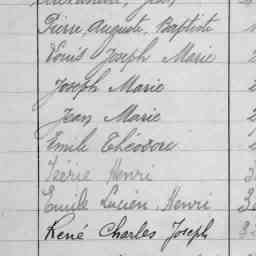 Pierre, Auguste, Baptiste
Louis Joseph Marie
Joseph Marie
Jean Marie
Emile Théodore
Henri
Emile Lucien, Henri
René Charles Joseph